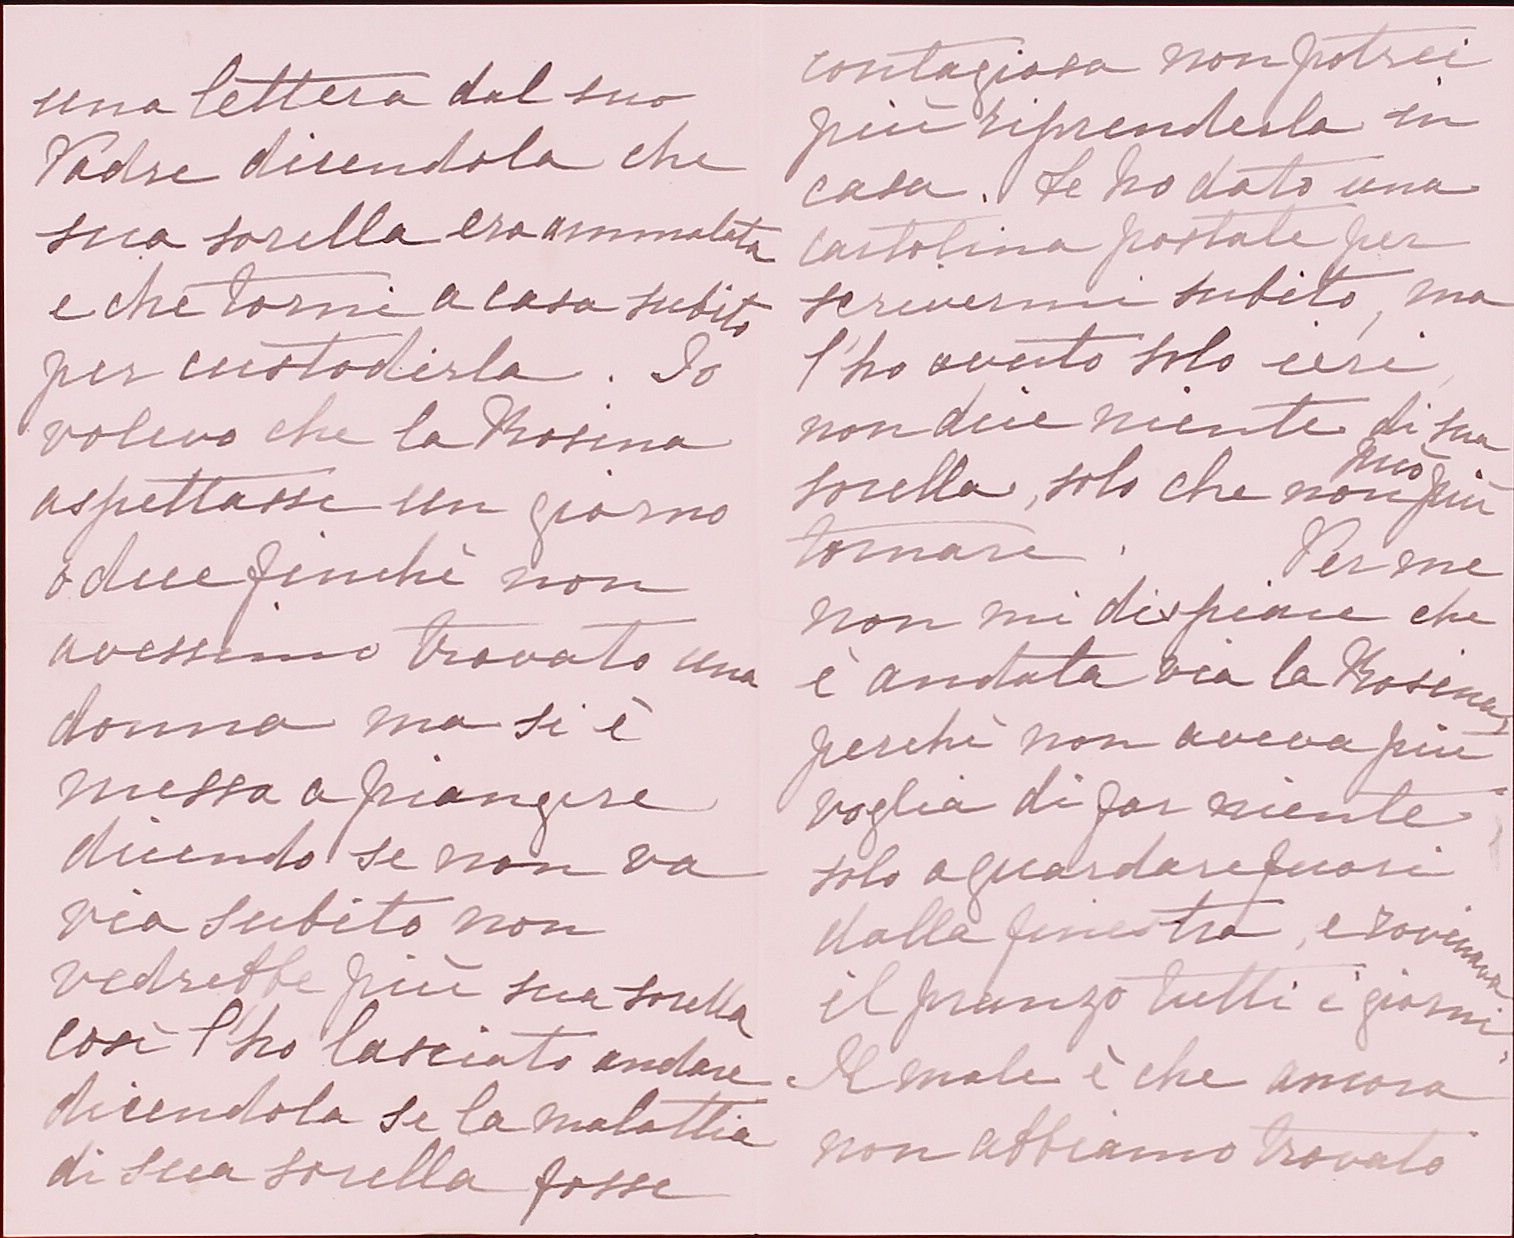 una lettera dal suo
Padre dicendola che
sua sorella era ammalata
e che torni a casa subito
per custodirla. Io
volevo che la Rosina
aspettasse un giorno
o due finchè non
avessimo trovato una
donna ma si è
messa a piangere
dicendo se non va
via subito non
vedrebbe più sua sorella
così l'ho lasciato andare
dicendola se la malattia
di sua sorella fosse
contagiosa non potrei
più riprenderla in
casa. Le ho dato una
cartolina postale per
scrivermi subito, ma
l'ho avuto solo ieri,
non dice niente di sua
sorella, solo che non può più
tornare. Per me
non mi dispiace che
è andata via la Rosina,
perchè non aveva più
voglia di far niente,
solo a guardare fuori
dalla finestra, e rovinava
il pranzo tutti i giorni.
Il male è che ancora
non abbiamo trovato